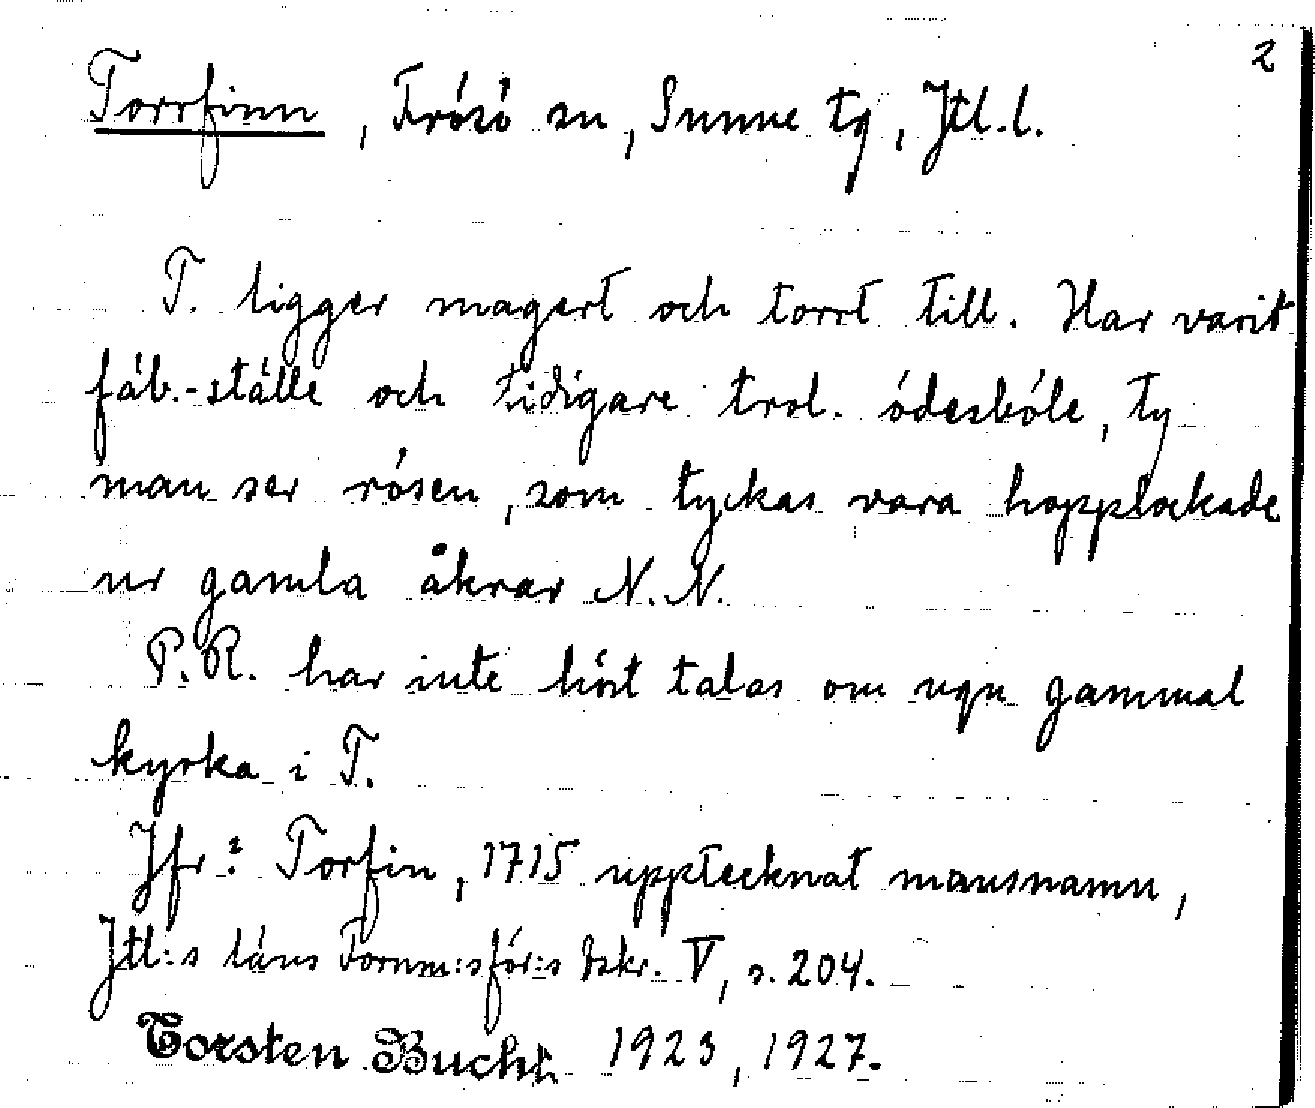 2
Torrfinn, Frösö sn, Sunne tg, Jtl.l.
T. ligger magert och torrt till. Har varit
fäb.-ställe och tidigare trol. ödesböle, ty
man ser rösen, som tyckas vara hopplockade
ur gamla åkrar N.N.
P.R. har inte hört talas om ngn gammal
kyrka i T.
Jfr: Torfin, 1715 upptecknat mansnamn,
Jtl:s läns Fornm:sför:s tskr. V, s. 204.
Torsten Bucht 1923, 1927.